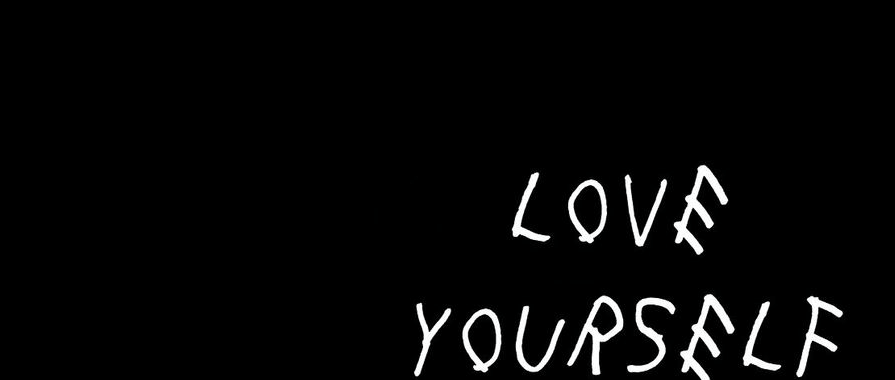 LOVE
YOURSELF